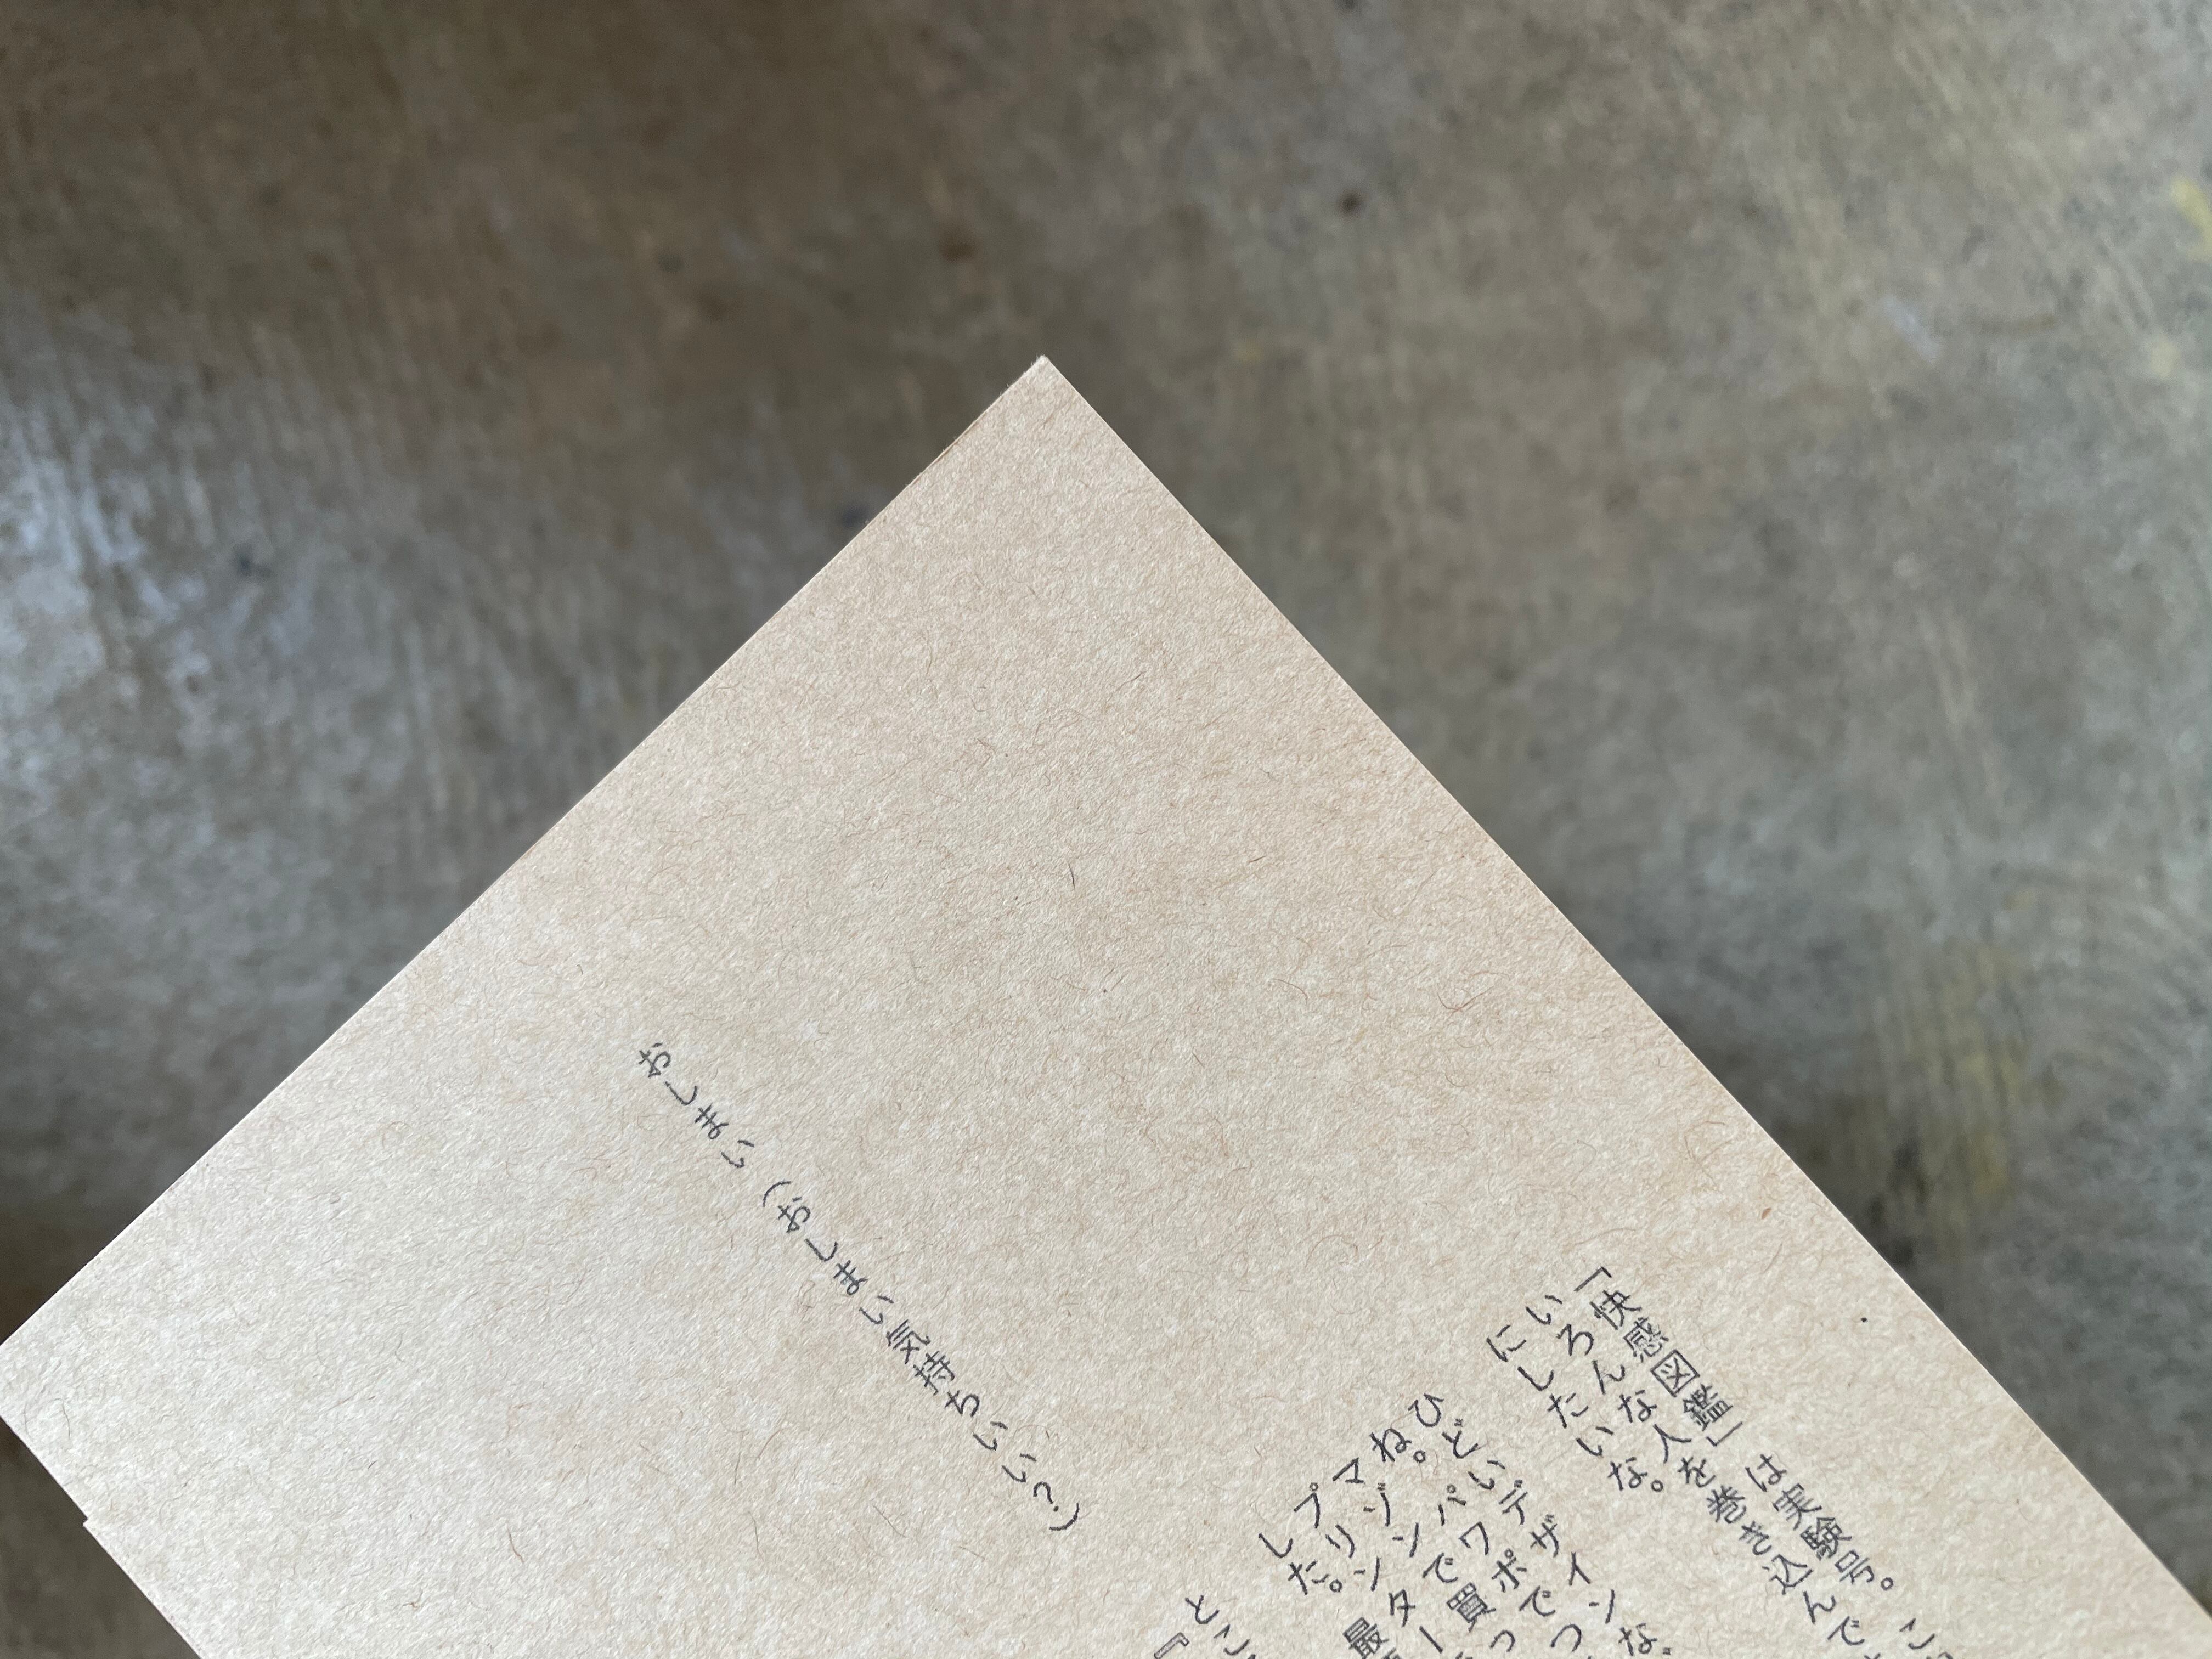 「快感図鑑」は実験号。こ
いろんな人を巻き込んで
にしたいな。
ひどいデザインな
ね。パワポでつ
マゾンで買っ
プリンター
した。最
とこ
『
おしまい（おしまい気持ちいい？）